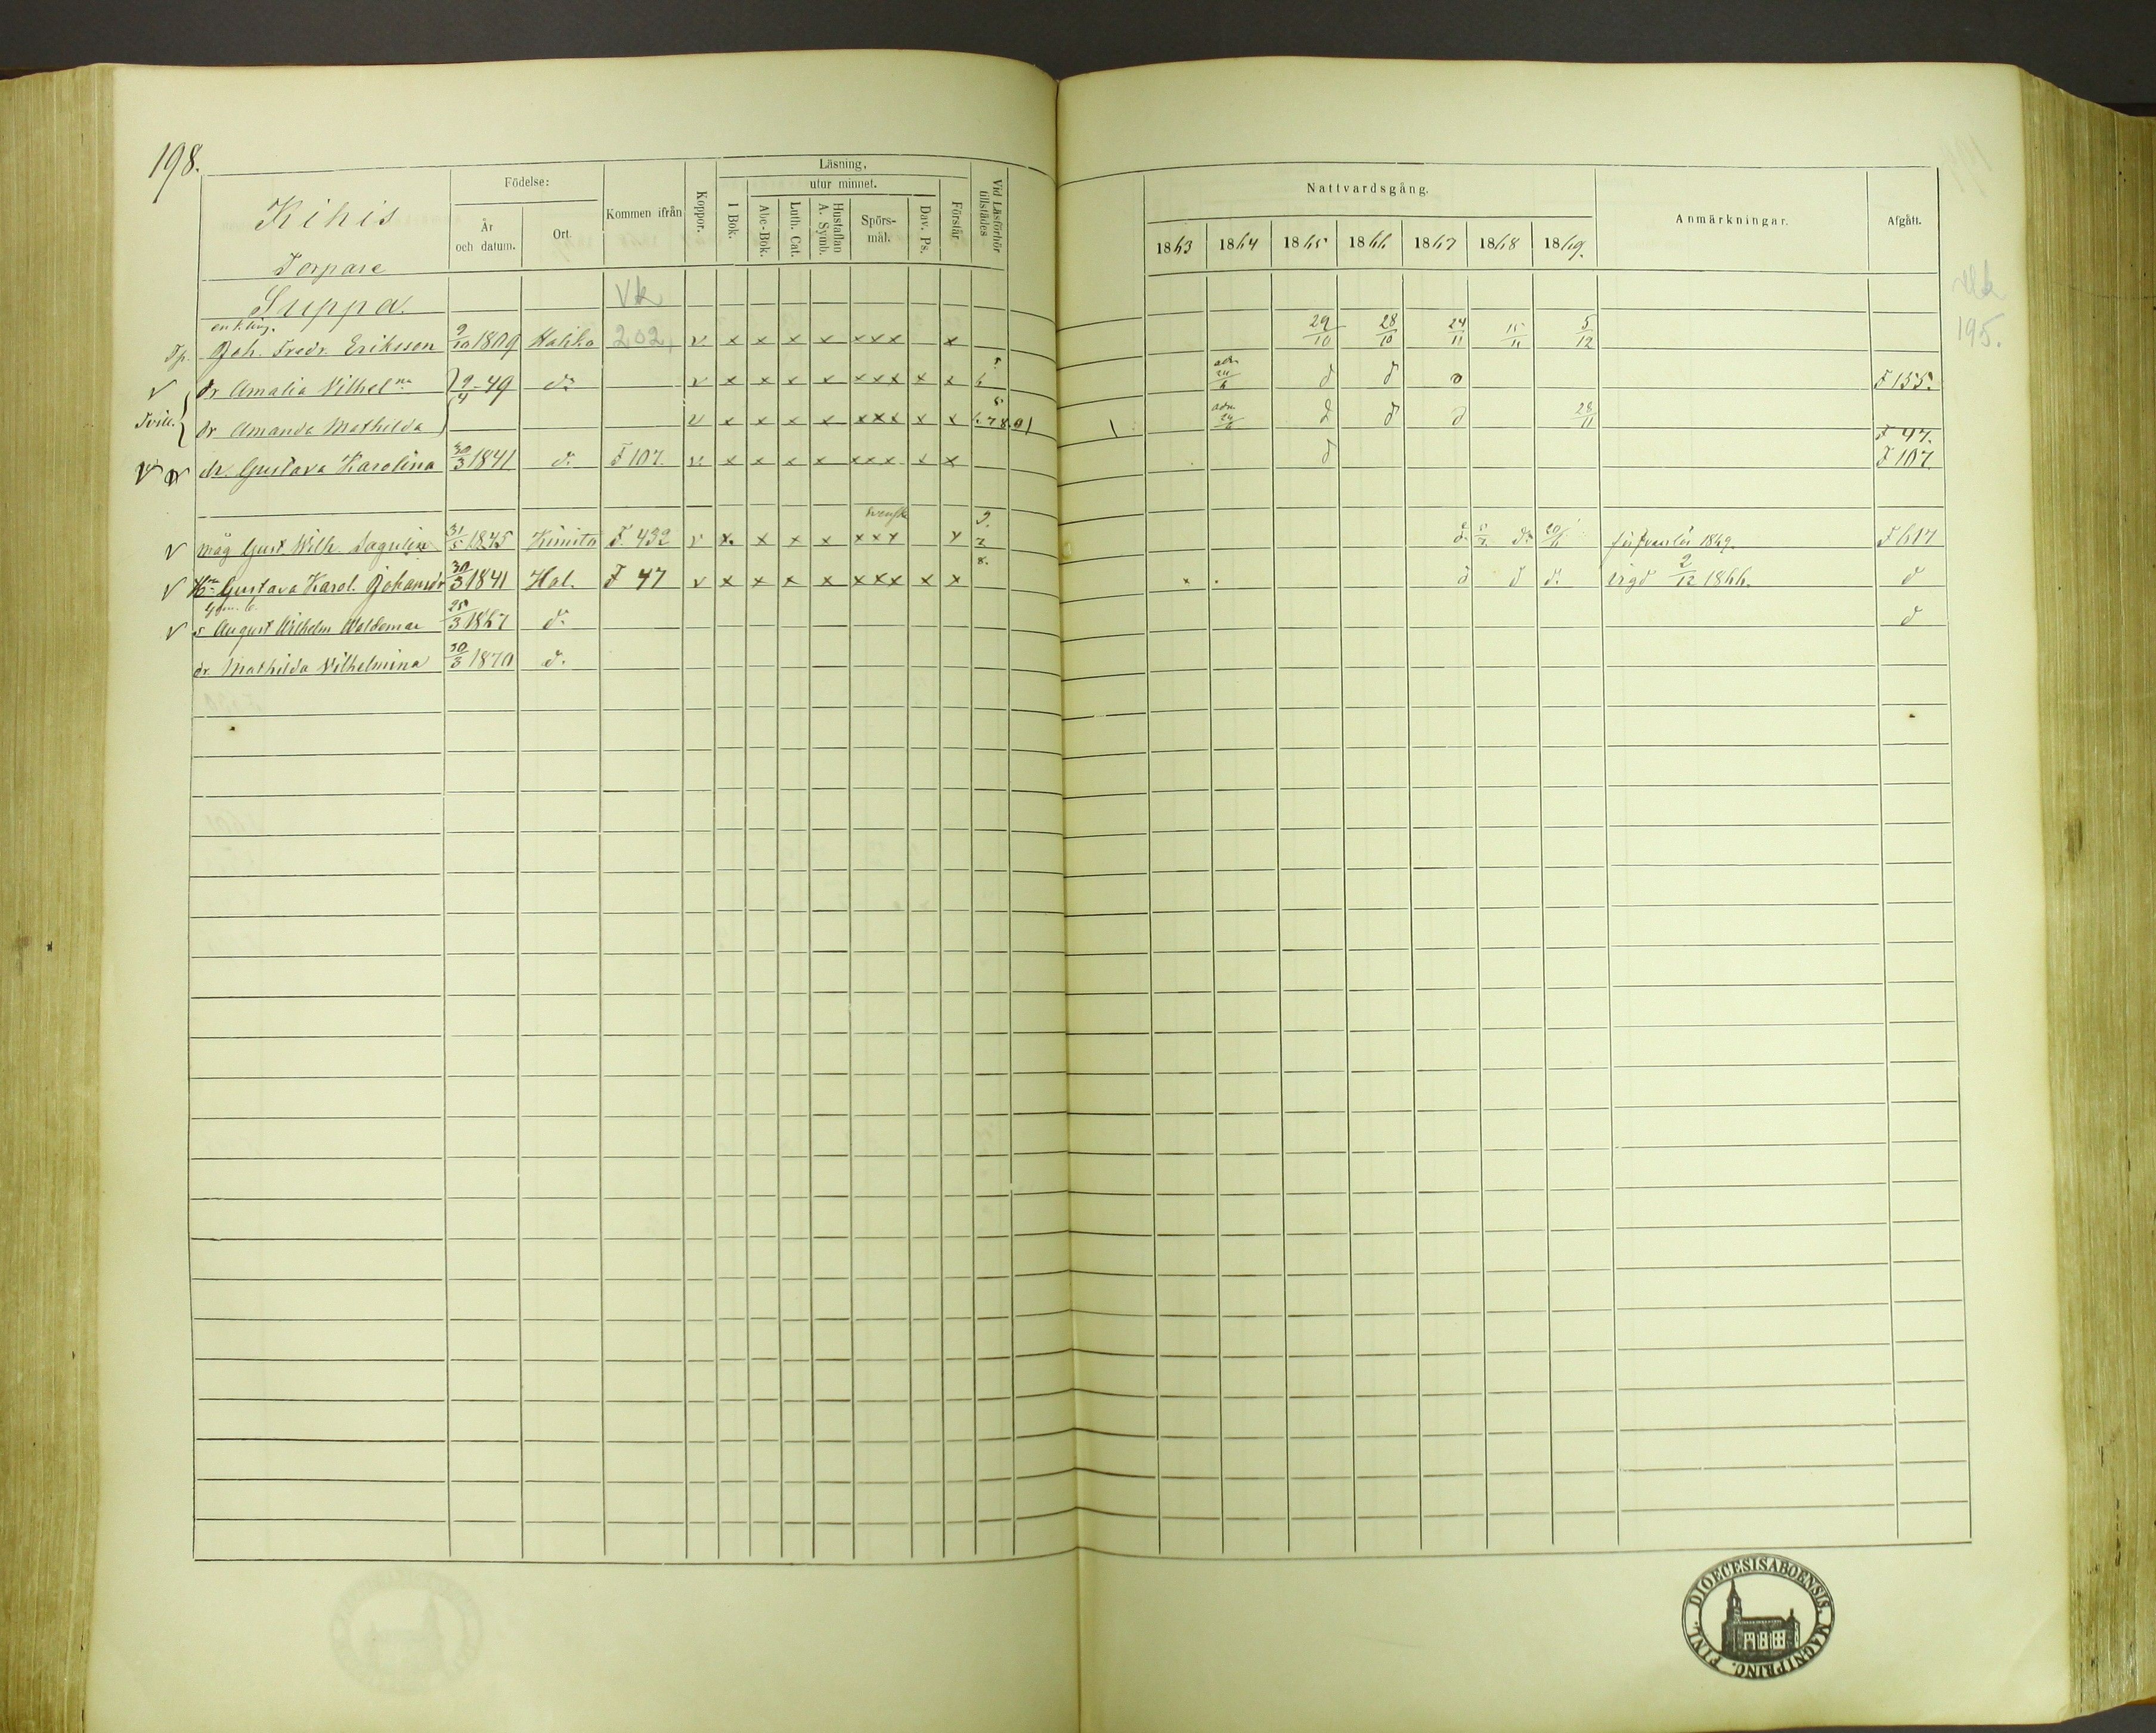 198.
Kihis
Torpare
Födelse:
År och datum.
Ort.
Kommen ifrån
Koppor.
Läsning,
I Bok.
utur minnet.
Abc-Bok.
Luth. Cat.
Hustaflan A. Symb.
Spörs-mål.
Dav. Ps.
Förstår
Vid Läsförhör tillstädes
Nattvardsgång.
1863 1864 1865 1866 1867 1868 1869.
Anmärkningar.
Afgått.
Suppa. Vk
195.
enkling.
Tp. Joh. Fredr. Eriksson 9/10 1809 Halikko 202, v x x x x xxx x 29/10 28/10 24/11 15/11 5/12
v dr Amalia Vilhelma 9/4 49 do v x x x x xxx x x 24/6 d d d F 155.
Tvill. dr Amanda Mathilda v x x x x xxx x x 6.7.8.9 adm. 24/6 d d d 28/11 F 47.
v dr. Gustava Karolina 30/3 1841 d. F 107. v x x x x xxx x x d F 107
svenska
v måg Gust. Wilh. Sagulin 31/5 1845 Kimito F. 432 v x x x x xxx x 20/6 1869. F 617
v Hu Gustava Karol. Johansdr 30/3 1841 Hal. F 47 v x x x x xxx x x d d d. vigd 2/12 1866. d
v s August Wilhelm Waldemar 25/3 1867 d. d
dr. Mathilda Vilhelmina 30/3 1870 d.
DIOECESIS ABOENSIS. MAGNI PRINC. FINL.